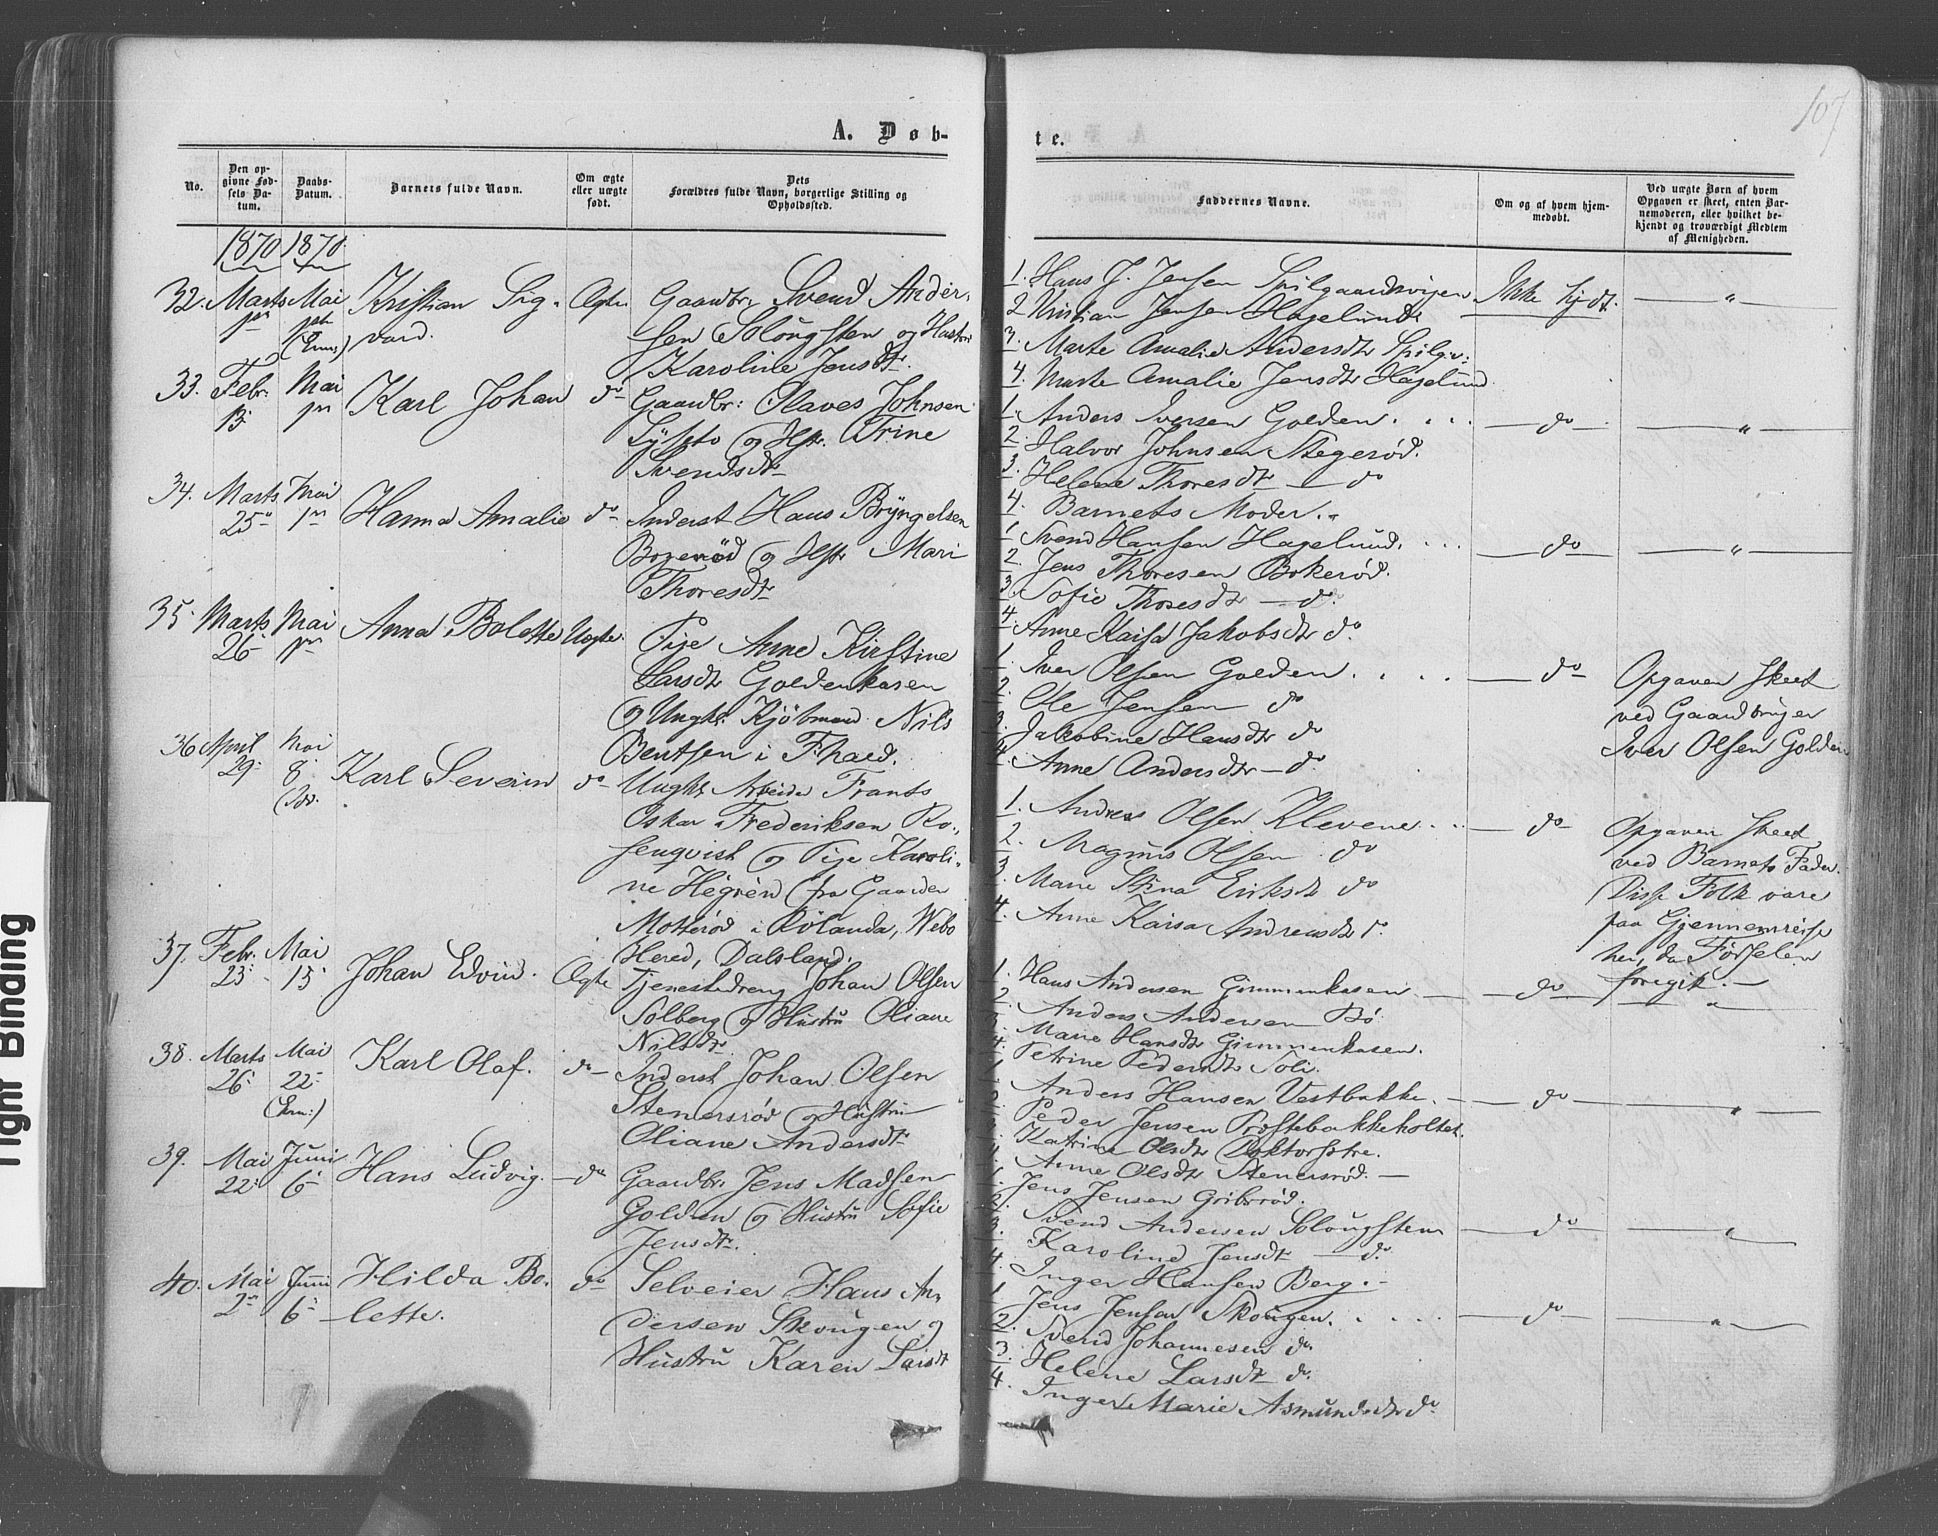 107
A. Døb-
te.
No.
Den op-
givne Fød-
sels Da-
tum.
Daabs-
Datum.
Barnets fulde Navn.
Om ægte
eller uægte
født.
Dets
Forældres fulde Navn, borgerlige Stilling og
Opholdssted.
Faddernes Navne.
Om og af hvem hjem-
medøbt.
Ved uægte Børn af hvem
Opgaven er skeet, enten Bar-
nemoderen, eller hvilket be-
kjendt og troværdigt Medlem
af Menigheden.
1870 1870
32. Marts Mai Kristian Sig- Ægte Gaardbr. Svend Ander-
vard. sen Skougsten og Hustru
Karoline Jensdtr
1. Hans J. Jensen
2 Kristian Jensen Hagelund
3. Marte Amalie Andersdtr
4. Marte Amalie Jensdtr Hagelund
Ikke hjdt. "
33. Febr. Mai Karl Johan do Gaardbr: Olaves Johnsen
og Hstr. Trine
Svendsdtr
1. Anders Iversen Golden
2. Halvor Johnsen Stegerød.
3. Helene Thoresdtr do
4. Barnets Moder.
do "
34. Marts Mai Hanna Amalie do Inderst Hans Bryngelsen
25 1 og Hstr Mari
Thoresdtr
1 Svend Hansen Hagelund.
2. Jens Thoresen Bokerød.
3. Sofie Thoresdtr do.
4. Anne Kaisa Jakobsdtr do.
do "
35. Marts Mai Anna Bolette Uægte. Pige Anne Kirstine
26 Larsdtr Goldenkasen
og Ungk. Kjøbmand Nils
Bentsen i Fhald.
1. Iver Olsen Golden
2. Ole Jensen do
3. Jakobine Hansdtr do
4. Anne Andersdtr do.
do
Opgaven skeet
ved Gaardbruger
Iver Olsen Golden
36 April Mai Karl Severin do Ungk. Arbeider Frants
29 8 Oskar Frederiksen Ro-
senqvist og Pige Karoli-
ne Hegren (fra Gaarden
Motterød i Rölanda, Webo
Hered, Dalsland.
1. Andreas Olsen Klevene
2. Magnus Olsen do
3. Marie Stina Eriksdtr do
4. Anne Kaisa Andreasdtr do.
do
Opgaven skeet
ved Barnets Fader.
Disse Folk vare
paa Gjennemreise
her, da Fødselen
foregik.
37. Febr. Mai Johan Edvin. Ægte Tjenestedreng Johan Olsen
23 15 Solberg og Hustru Oliane
Nilsdtr
1. Hans Andersen Gimmenkasen
2. Anders Andersen Bø
3. Marie Hansdtr Gimmenkasen.
4. Petrine Pedersdtr Soli.
do "
38. Marts Mai Karl Olaf. do Inderst Johan Olsen
26 22 Stenersrød og Hustru
Oliane Andersdtr
1. Anders Hansen Vestbakke.
2. Peder Jensen Prestebakkeholtet.
3. Katrine Olsdtr Doktorstre.
4. Anne Olsdtr Stenersrød.
do "
39. Mai Juni Hans Ludvig. do Gaardbr. Jens Madsen
22 6 Golden og Hustru Sofie
Jensdtr.
1. Jens Jensen Gribsrød.
2. Svend Andersen Skougsten
3. Karoline Jensdtr do.
4. Inger Hansen Berg.
do "
40. Mai Juni Hilda Bo- do Selveier Hans An-
2 6 lette. dersen Skougen og
Hustru Karen Larsdtr
1 Jens Jensen Skougen.
2. Svend Johannesen do
3. Helene Larsdtr do
4. Inger Marie Asmundsdtr do
do "
Tight Binding